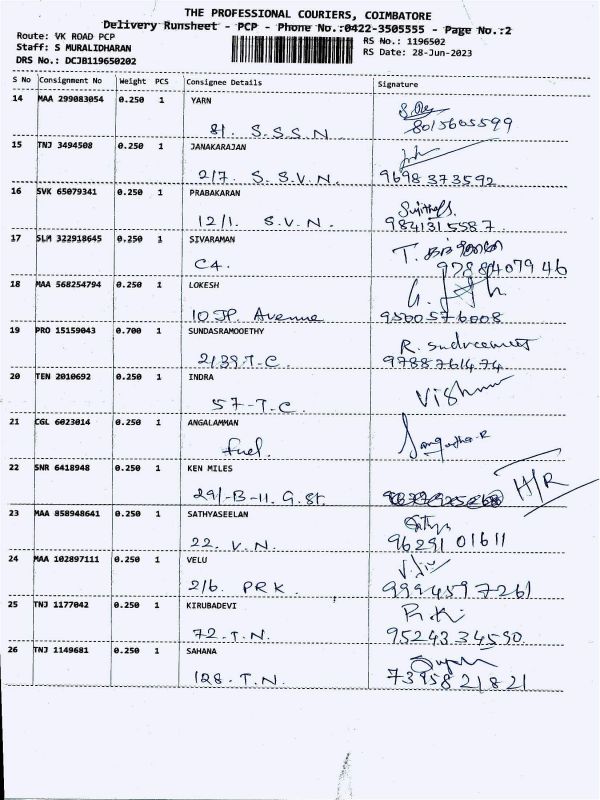 THE PROFESSIONAL COURIERS, COIMBATORE
Delivery Runsheet - PCP - Phone No.:0422-3505555 - Page No.:2
Route: VK ROAD PCP
Staff: S MURALIDHARAN
DRS No.: DCJB119650202
RS No.: 1196502
RS Date: 28-Jun-2023
S No Consignment No Weight PCS Consignee Details Signature
14 MAA 299083054 0.250 1 YARN
81. S.S.S.N. 8015605599
15 TNJ 3494508 0.250 1 JANAKARAJAN
2/7. S.S.V.N. 9698373592
16 SVK 65079341 0.250 1 PRABAKARAN
12/1. S.V.N. 9841315587
17 SLM 322918645 0.250 1 SIVARAMAN
C4. 9788407946
18 MAA 568254794 0.250 1 LOKESH
10 JP. Avenue 9500576008
19 PRO 15159043 0.700 1 SUNDASRAMOOETHY
2/39.T.C. 9788761474
20 TEN 2010692 0.250 1 INDRA
57-T.C.
21 CGL 6023014 0.250 1 ANGALAMMAN
fuel.
22 SNR 6418948 0.250 1 KEN MILES
29/-B-11. G.St. H/R
23 MAA 858948641 0.250 1 SATHYASEELAN
22. V.N. 96291 01611
24 MAA 102897111 0.250 1 VELU
2/6. PRK. 9994597261
25 TNJ 1177042 0.250 1 KIRUBADEVI
72.T.N. 9524334590
26 TNJ 1149681 0.250 1 SAHANA
128.T.N. 7395821821